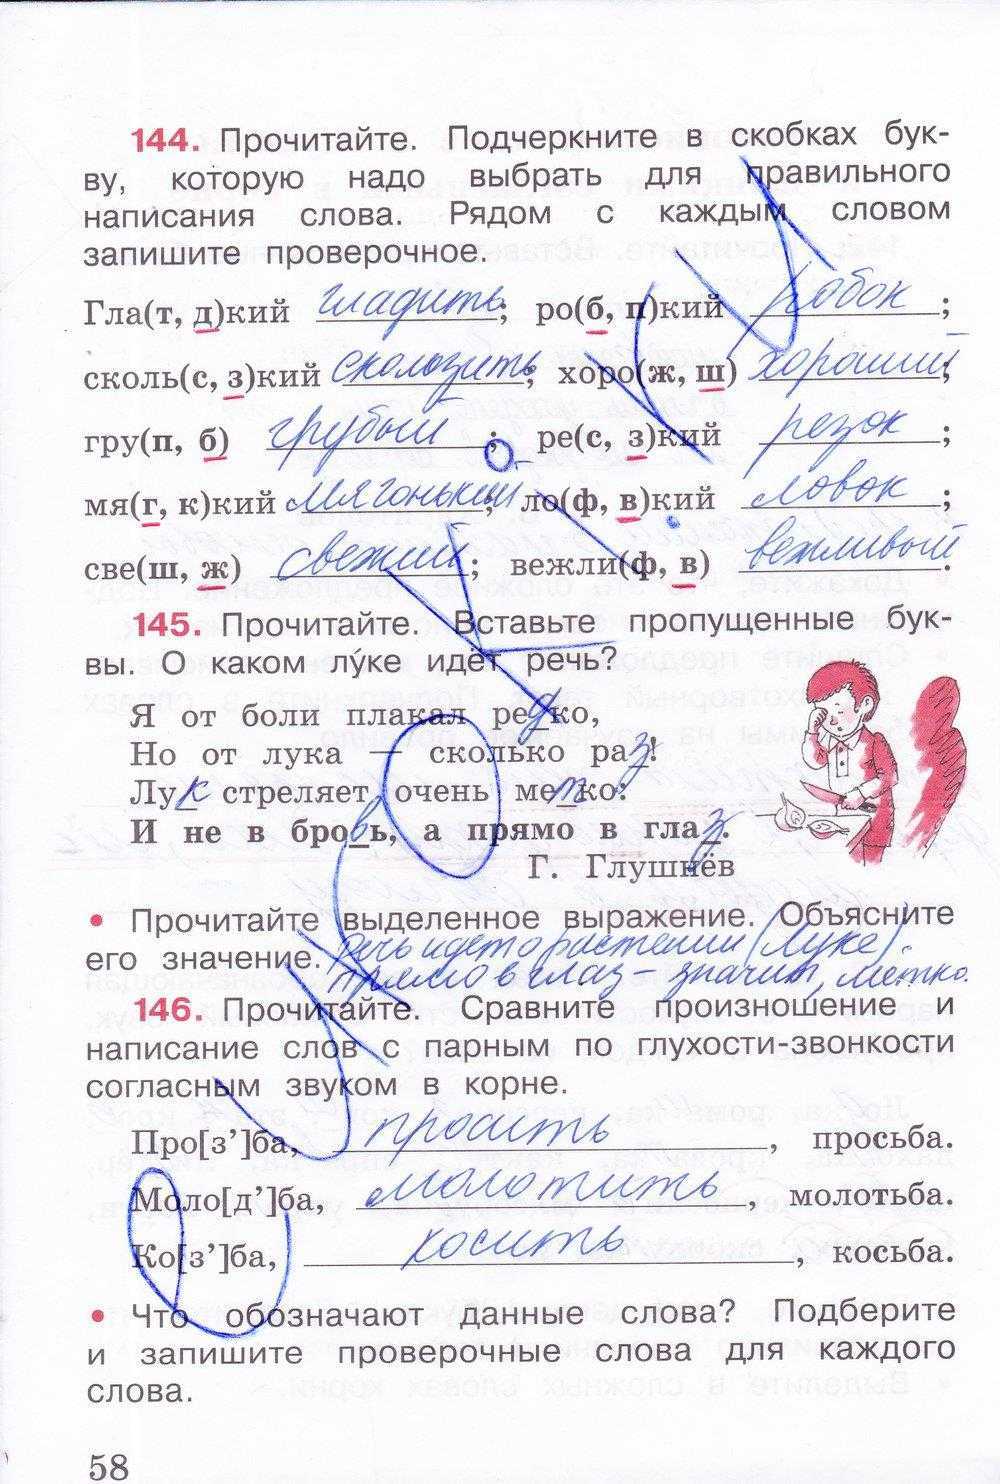 144. Прочитайте. Подчеркните в скобках бук-
ву, которую надо выбрать для правильного
написания слова. Рядом с каждым словом
запишите проверочное.
Гла(т, д)кий гладить; ро(б, п)кий робок;
сколь(с, з)кий скользить; хоро(ж, ш) хороший;
гру(п, б) грубый; ре(с, з)кий резок;
мя(г, к)кий мягонький; ло(ф, в)кий ловок;
све(ш, ж) свежий; вежли(ф, в) вежливый.
145. Прочитайте. Вставьте пропущенные бук-
вы. О каком лу́ке идёт речь?
Я от боли плакал редко,
Но от лука — сколько раз!
Лук стреляет очень метко:
И не в бровь, а прямо в глаз.
Г. Глушнёв
• Прочитайте выделенное выражение. Объясните
его значение. речь идет о растении (луке).
прямо в глаз – значит, метко.
146. Прочитайте. Сравните произношение и
написание слов с парным по глухости-звонкости
согласным звуком в корне.
Про[з’]ба, просить, просьба.
Моло[д’]ба, молотить, молотьба.
Ко[з’]ба, косить, косьба.
• Что обозначают данные слова? Подберите
и запишите проверочные слова для каждого
слова.
58